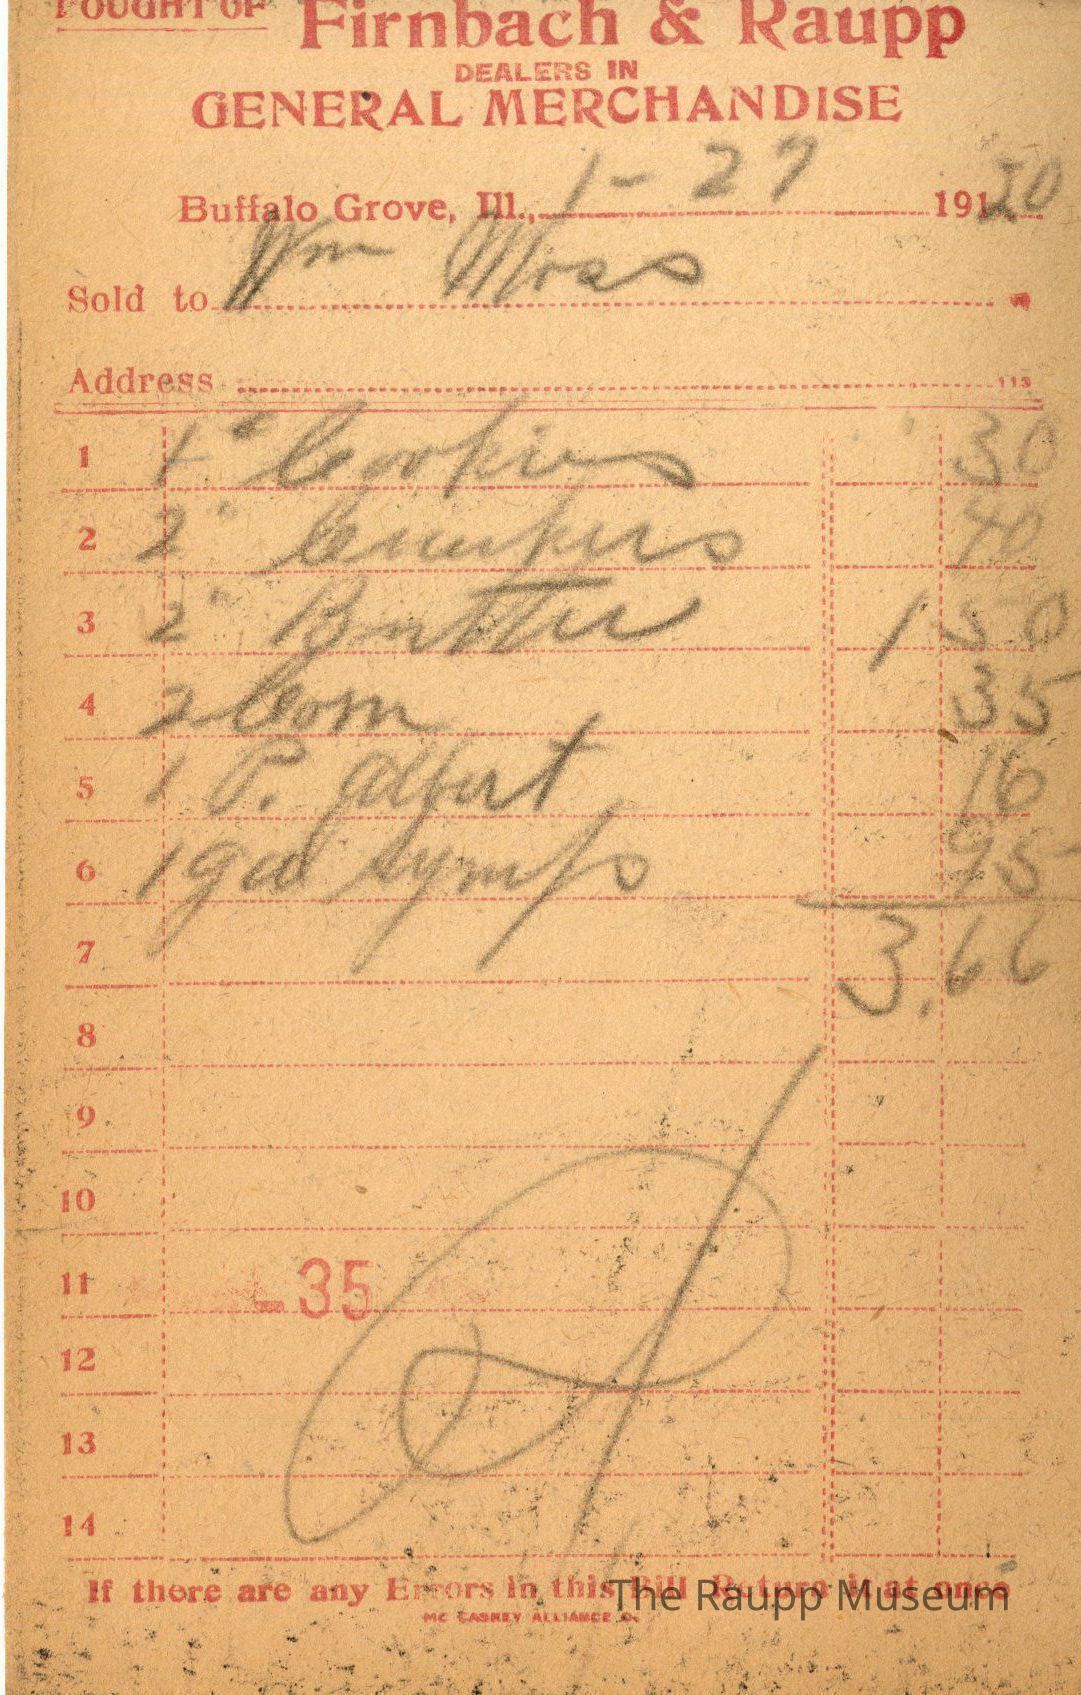 BOUGHT OF Firnbach & Raupp
DEALERS IN
GENERAL MERCHANDISE
Buffalo Grove, Ill., 1-27 191 20
Sold to Wm Moss
Address
113
1 1 " Cookies 30
2 2 " Crackers 40
3 2 " Butter 1 50
4 2 Corn 35
5 1 P. Albert 16
6 1 gal Syrup 95
7 3.66
8
9
10
11 -35
12
13
14
If there are any Errors in this Bill Return it at once
MC CASKEY ALLIANCE O.
The Raupp Museum